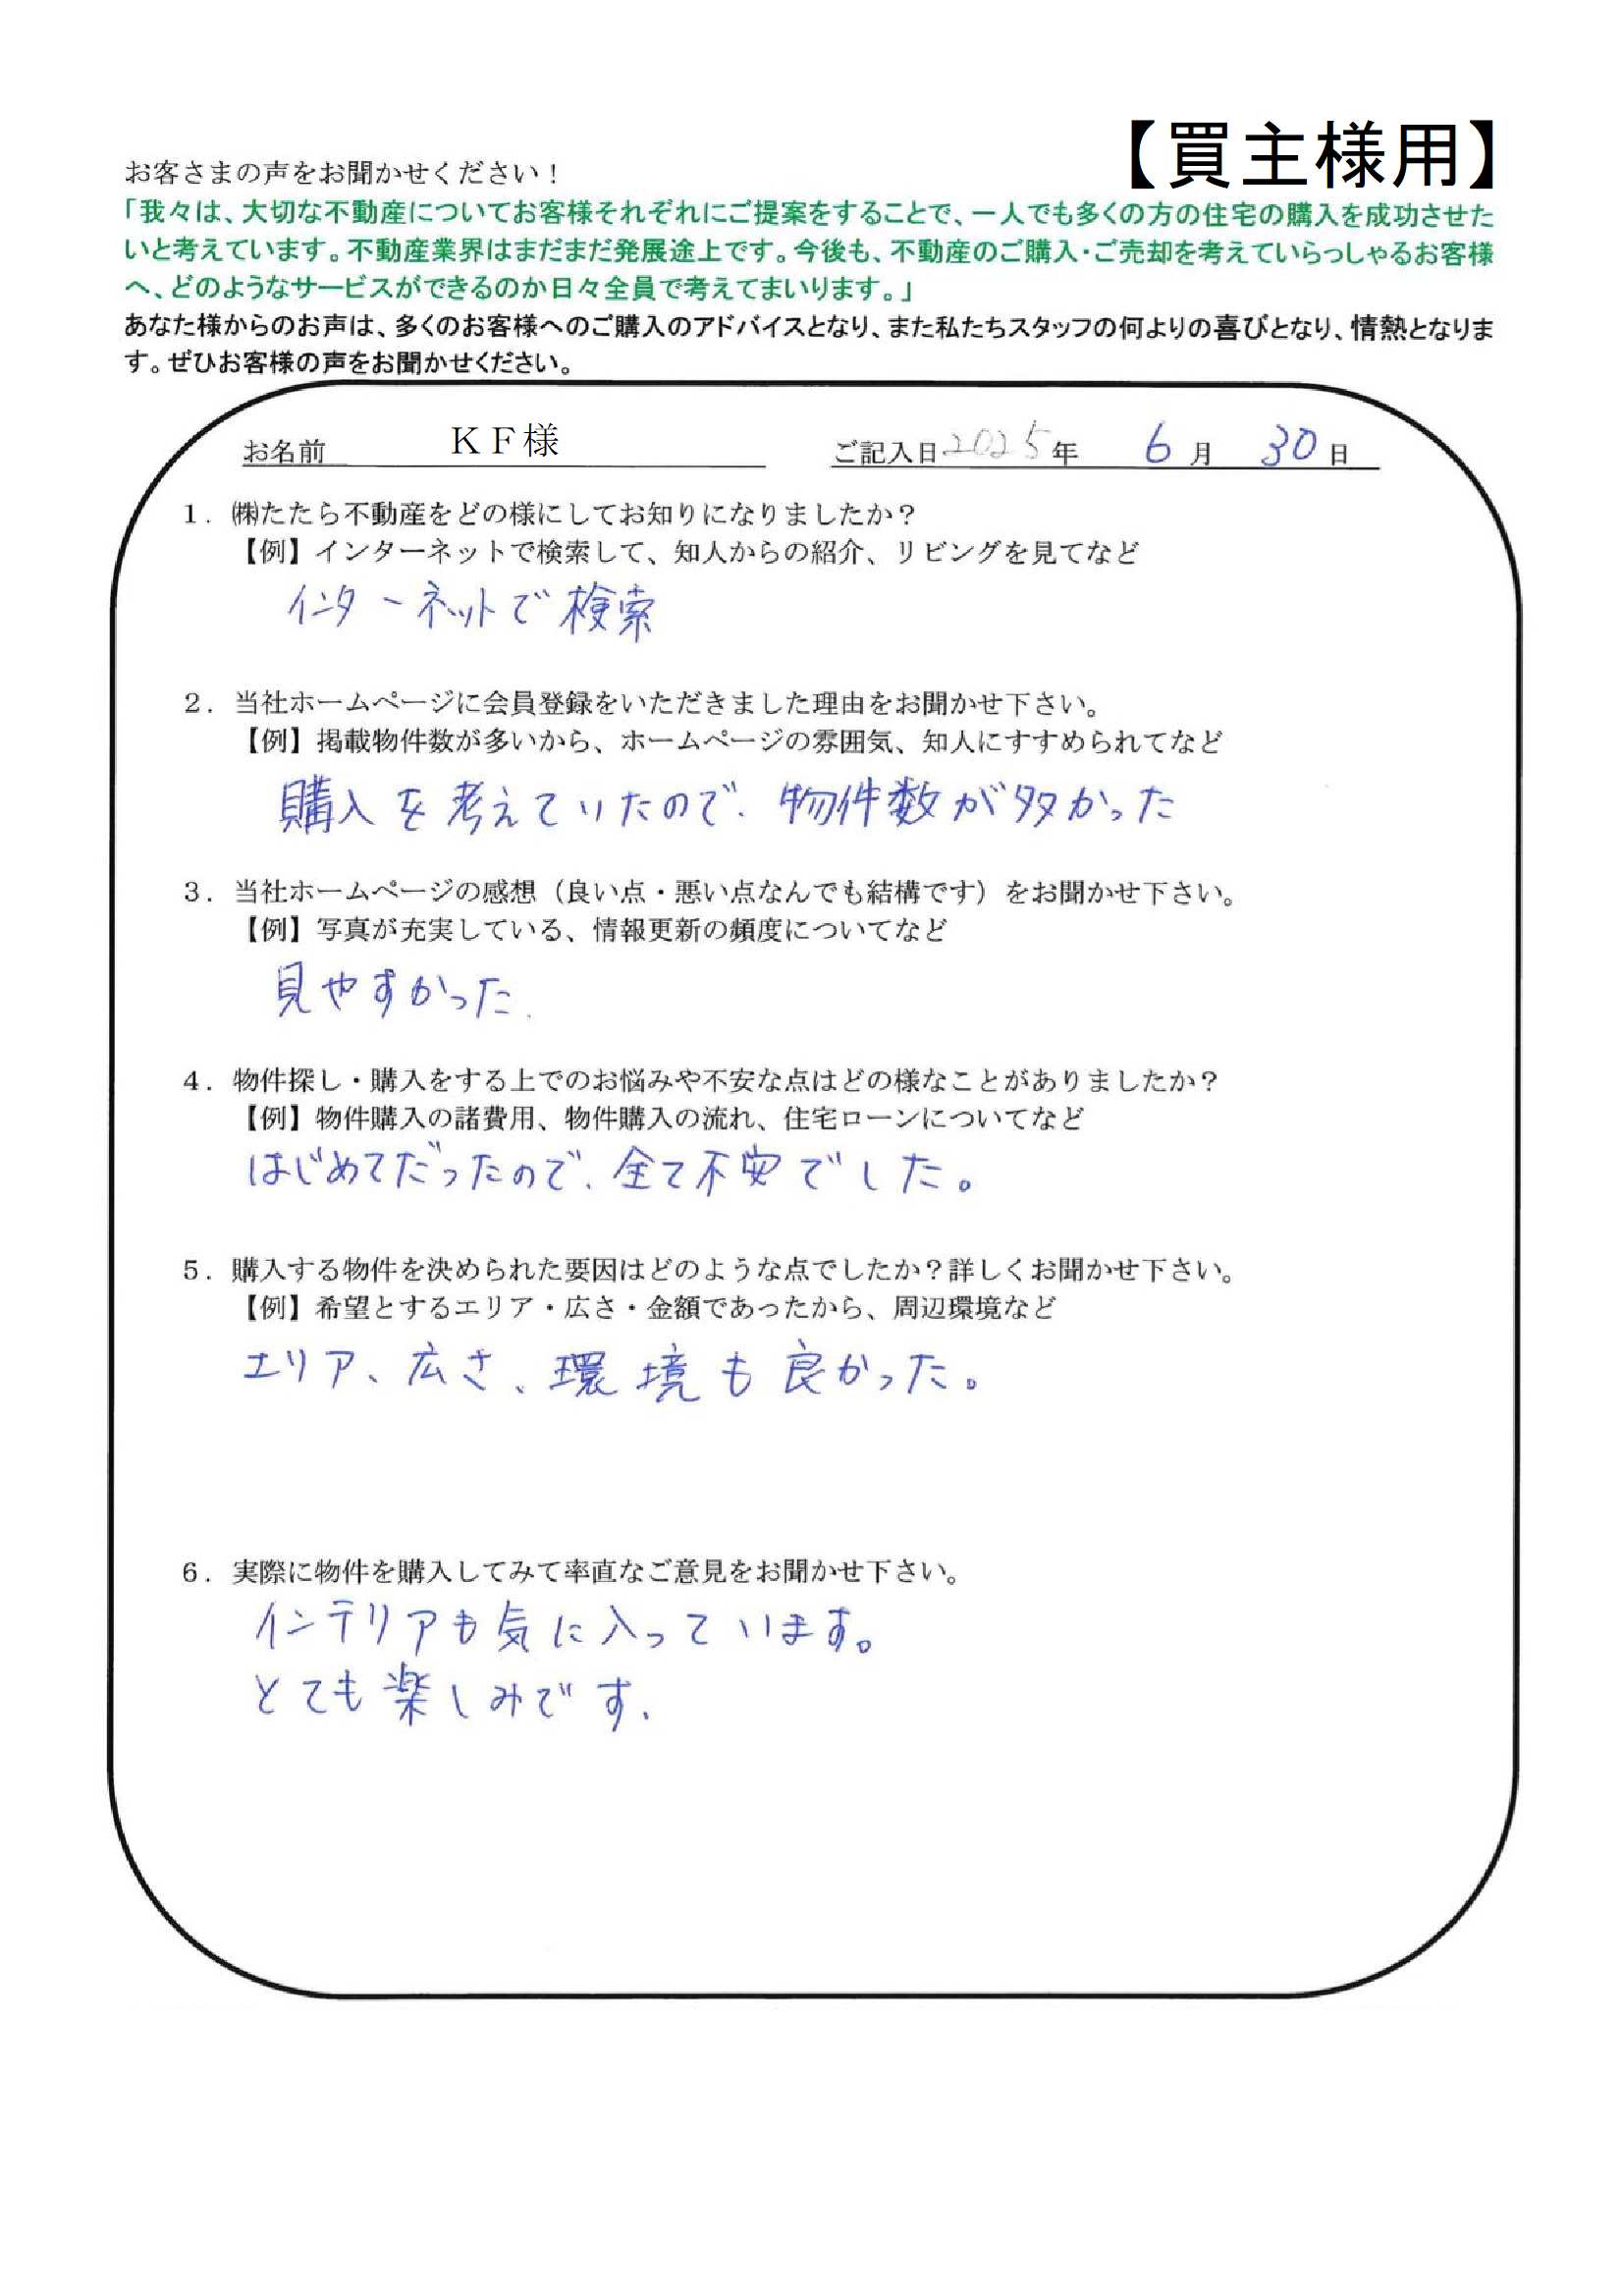 【買主様用】
お客さまの声をお聞かせください！
「我々は、大切な不動産についてお客様それぞれにご提案をすることで、一人でも多くの方の住宅の購入を成功させた
いと考えています。不動産業界はまだまだ発展途上です。今後も、不動産のご購入・ご売却を考えていらっしゃるお客様
へ、どのようなサービスができるのか日々全員で考えてまいります。」
あなた様からのお声は、多くのお客様へのご購入のアドバイスとなり、また私たちスタッフの何よりの喜びとなり、情熱となりま
す。ぜひお客様の声をお聞かせください。
お名前 ＫＦ様 ご記入日 2025年 6月 30日
１．㈱たたら不動産をどの様にしてお知りになりましたか？
【例】インターネットで検索して、知人からの紹介、リビングを見てなど
インターネットで検索
２．当社ホームページに会員登録をいただきました理由をお聞かせ下さい。
【例】掲載物件数が多いから、ホームページの雰囲気、知人にすすめられてなど
購入を考えていたので、物件数が多かった
３．当社ホームページの感想（良い点・悪い点なんでも結構です）をお聞かせ下さい。
【例】写真が充実している、情報更新の頻度についてなど
見やすかった.
４．物件探し・購入をする上でのお悩みや不安な点はどの様なことがありましたか？
【例】物件購入の諸費用、物件購入の流れ、住宅ローンについてなど
はじめてだったので、全て不安でした。
５．購入する物件を決められた要因はどのような点でしたか？詳しくお聞かせ下さい。
【例】希望とするエリア・広さ・金額であったから、周辺環境など
エリア、広さ、環境も良かった。
６．実際に物件を購入してみて率直なご意見をお聞かせ下さい。
インテリアも気に入っています。
とても楽しみです、